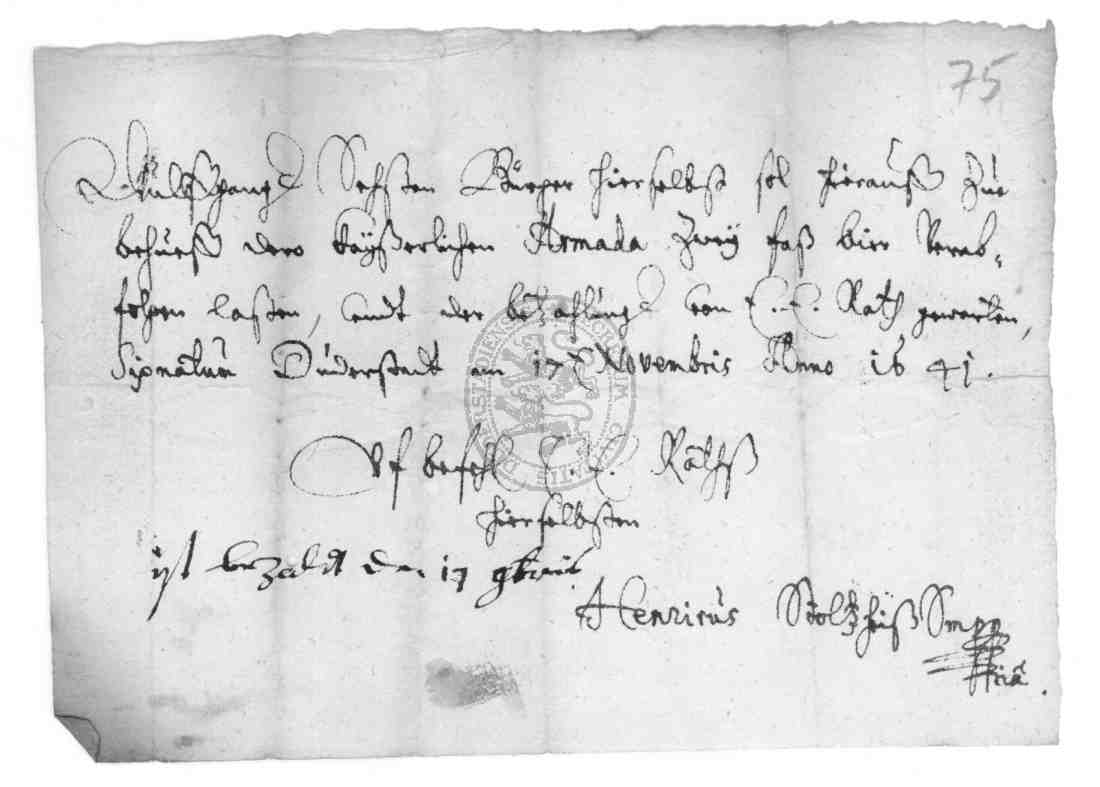 75
Wulffgang Sechsten Bürger hierselbst sol hierauß zue
behueff dero kayßerlichen Armada zwey faß bier verab-
folgen laßen, undt der bezahlung von E. E. Rath gewarten,
Signatum Duderstadt am 17 Novembris Anno 1641.
Uf befehl E. E. Raths
hierselbsten
ist bezahlt den 17 9bris
Henricus mpp
ria.